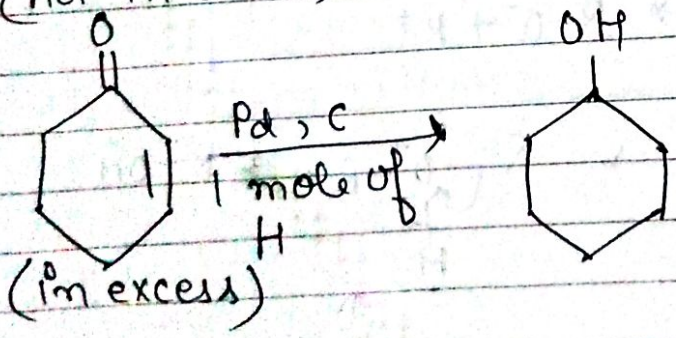 O
OH
Pd, C
1 mole of
H
(in excess)